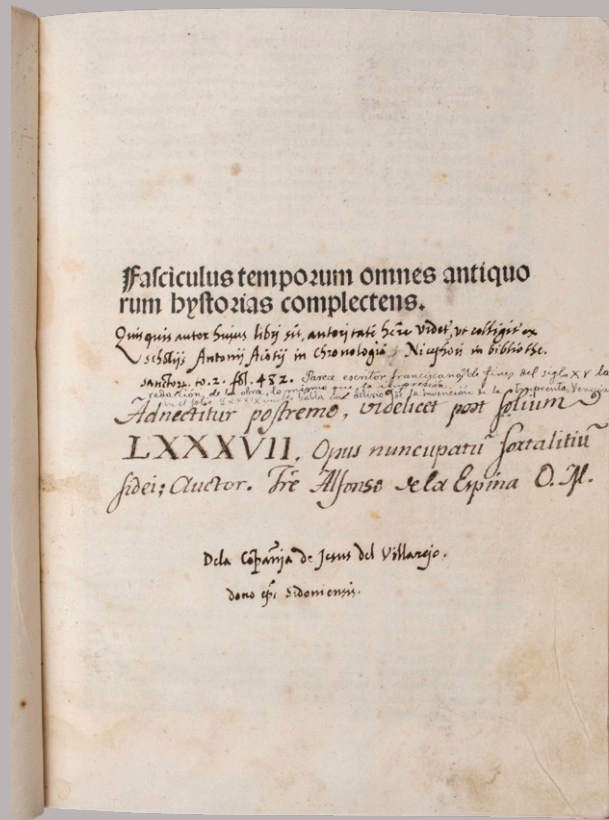 Fasciculus temporum omnes antiquo
rum hystorias complectens.
Quisquis autor hujus libri sit, autoritatē hēre videt, ut colligit ex
scholijs Antonij in Chronologiā Nicephori in bibliothe.
sanctorū. to. 2. fol. 482. Parece escritor franciscano de fines del siglo XV la
redacción de la obra, lo mismo que la impresión.
el folio LXXXIX la invención de la Imprenta
Adnectitur postremo, videlicet post folium
LXXXVII. Opus nuncupatū fortalitiū
fidei; Auctor. Fre Alfonso de la Espina O. M.
Dela Cōpañia de Jesus del Villarejo.
dono epī sidoniensis.